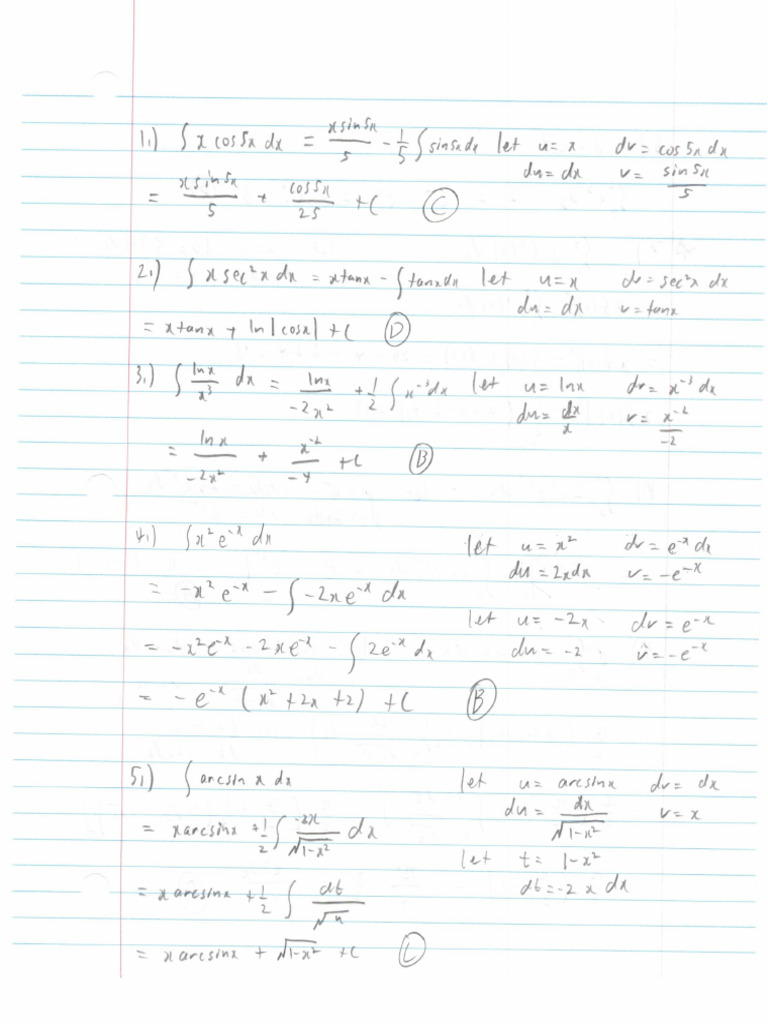 1.) ∫ x cos5x dx = x sin5x / 5 - 1/5 ∫ sin5x dx let u = x dv = cos 5x dx
du = dx v = sin 5x / 5
= x sin 5x / 5 + cos 5x / 25 + C Ⓒ
2.) ∫ x sec²x dx = x tanx - ∫ tanx dx let u = x dv = sec²x dx
du = dx v = tanx
= x tanx + ln|cosx| + C Ⓓ
3.) ∫ lnx / x³ dx = lnx / -2x² + 1/2 ∫ x⁻³ dx let u = lnx dv = x⁻³ dx
du = dx / x v = x⁻² / -2
= lnx / -2x² + x⁻² / -4 + C Ⓑ
4.) ∫ x² e⁻ˣ dx let u = x² dv = e⁻ˣ dx
du = 2x dx v = -e⁻ˣ
= -x² e⁻ˣ - ∫ -2x e⁻ˣ dx
let u = -2x dv = e⁻ˣ
= -x² e⁻ˣ - 2x e⁻ˣ - ∫ 2e⁻ˣ dx du = -2 v = -e⁻ˣ
= - e⁻ˣ (x² + 2x + 2) + C Ⓑ
5.) ∫ arcsin x dx let u = arcsinx dv = dx
du = dx / √1-x² v = x
= x arcsinx + 1/2 ∫ -2x / √1-x² dx
let t = 1-x²
dt = -2x dx
= x arcsinx + 1/2 ∫ dt / √u
= x arcsinx + √1-x² + C Ⓒ